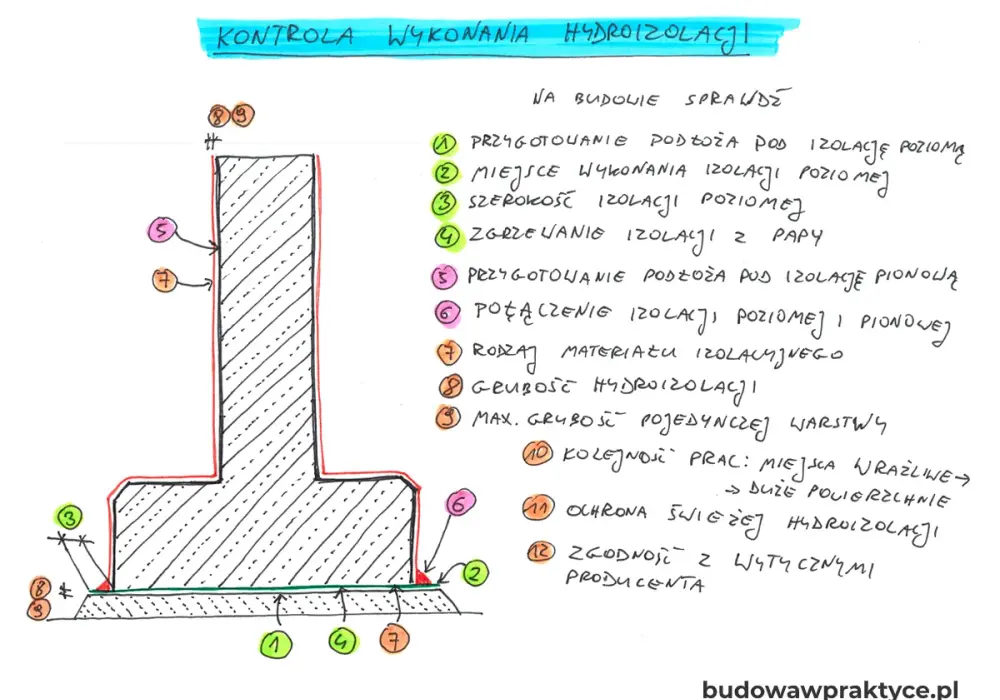 KONTROLA WYKONANIA HYDROIZOLACJI
NA BUDOWIE SPRAWDŹ
1 PRZYGOTOWANIE PODŁOŻA POD IZOLACJĘ POZIOMĄ
2 MIEJSCE WYKONANIA IZOLACJI POZIOMEJ
3 SZEROKOŚĆ IZOLACJI POZIOMEJ
4 ZGRZEWANIE IZOLACJI Z PAPY
5 PRZYGOTOWANIE PODŁOŻA POD IZOLACJĘ PIONOWĄ
6 POŁĄCZENIE IZOLACJI POZIOMEJ I PIONOWEJ
7 RODZAJ MATERIAŁU IZOLACYJNEGO
8 GRUBOŚĆ HYDROIZOLACJI
9 MAX. GRUBOŚĆ POJEDYNCZEJ WARSTWY
10 KOLEJNOŚĆ PRAC: MIEJSCA WRAŻLIWE →
→ DUŻE POWIERZCHNIE
11 OCHRONA ŚWIEŻEJ HYDROIZOLACJI
12 ZGODNOŚĆ Z WYTYCZNYMI
PRODUCENTA
8 9
5
7
3
6
2
8
9
1 4 7
budowawpraktyce.pl